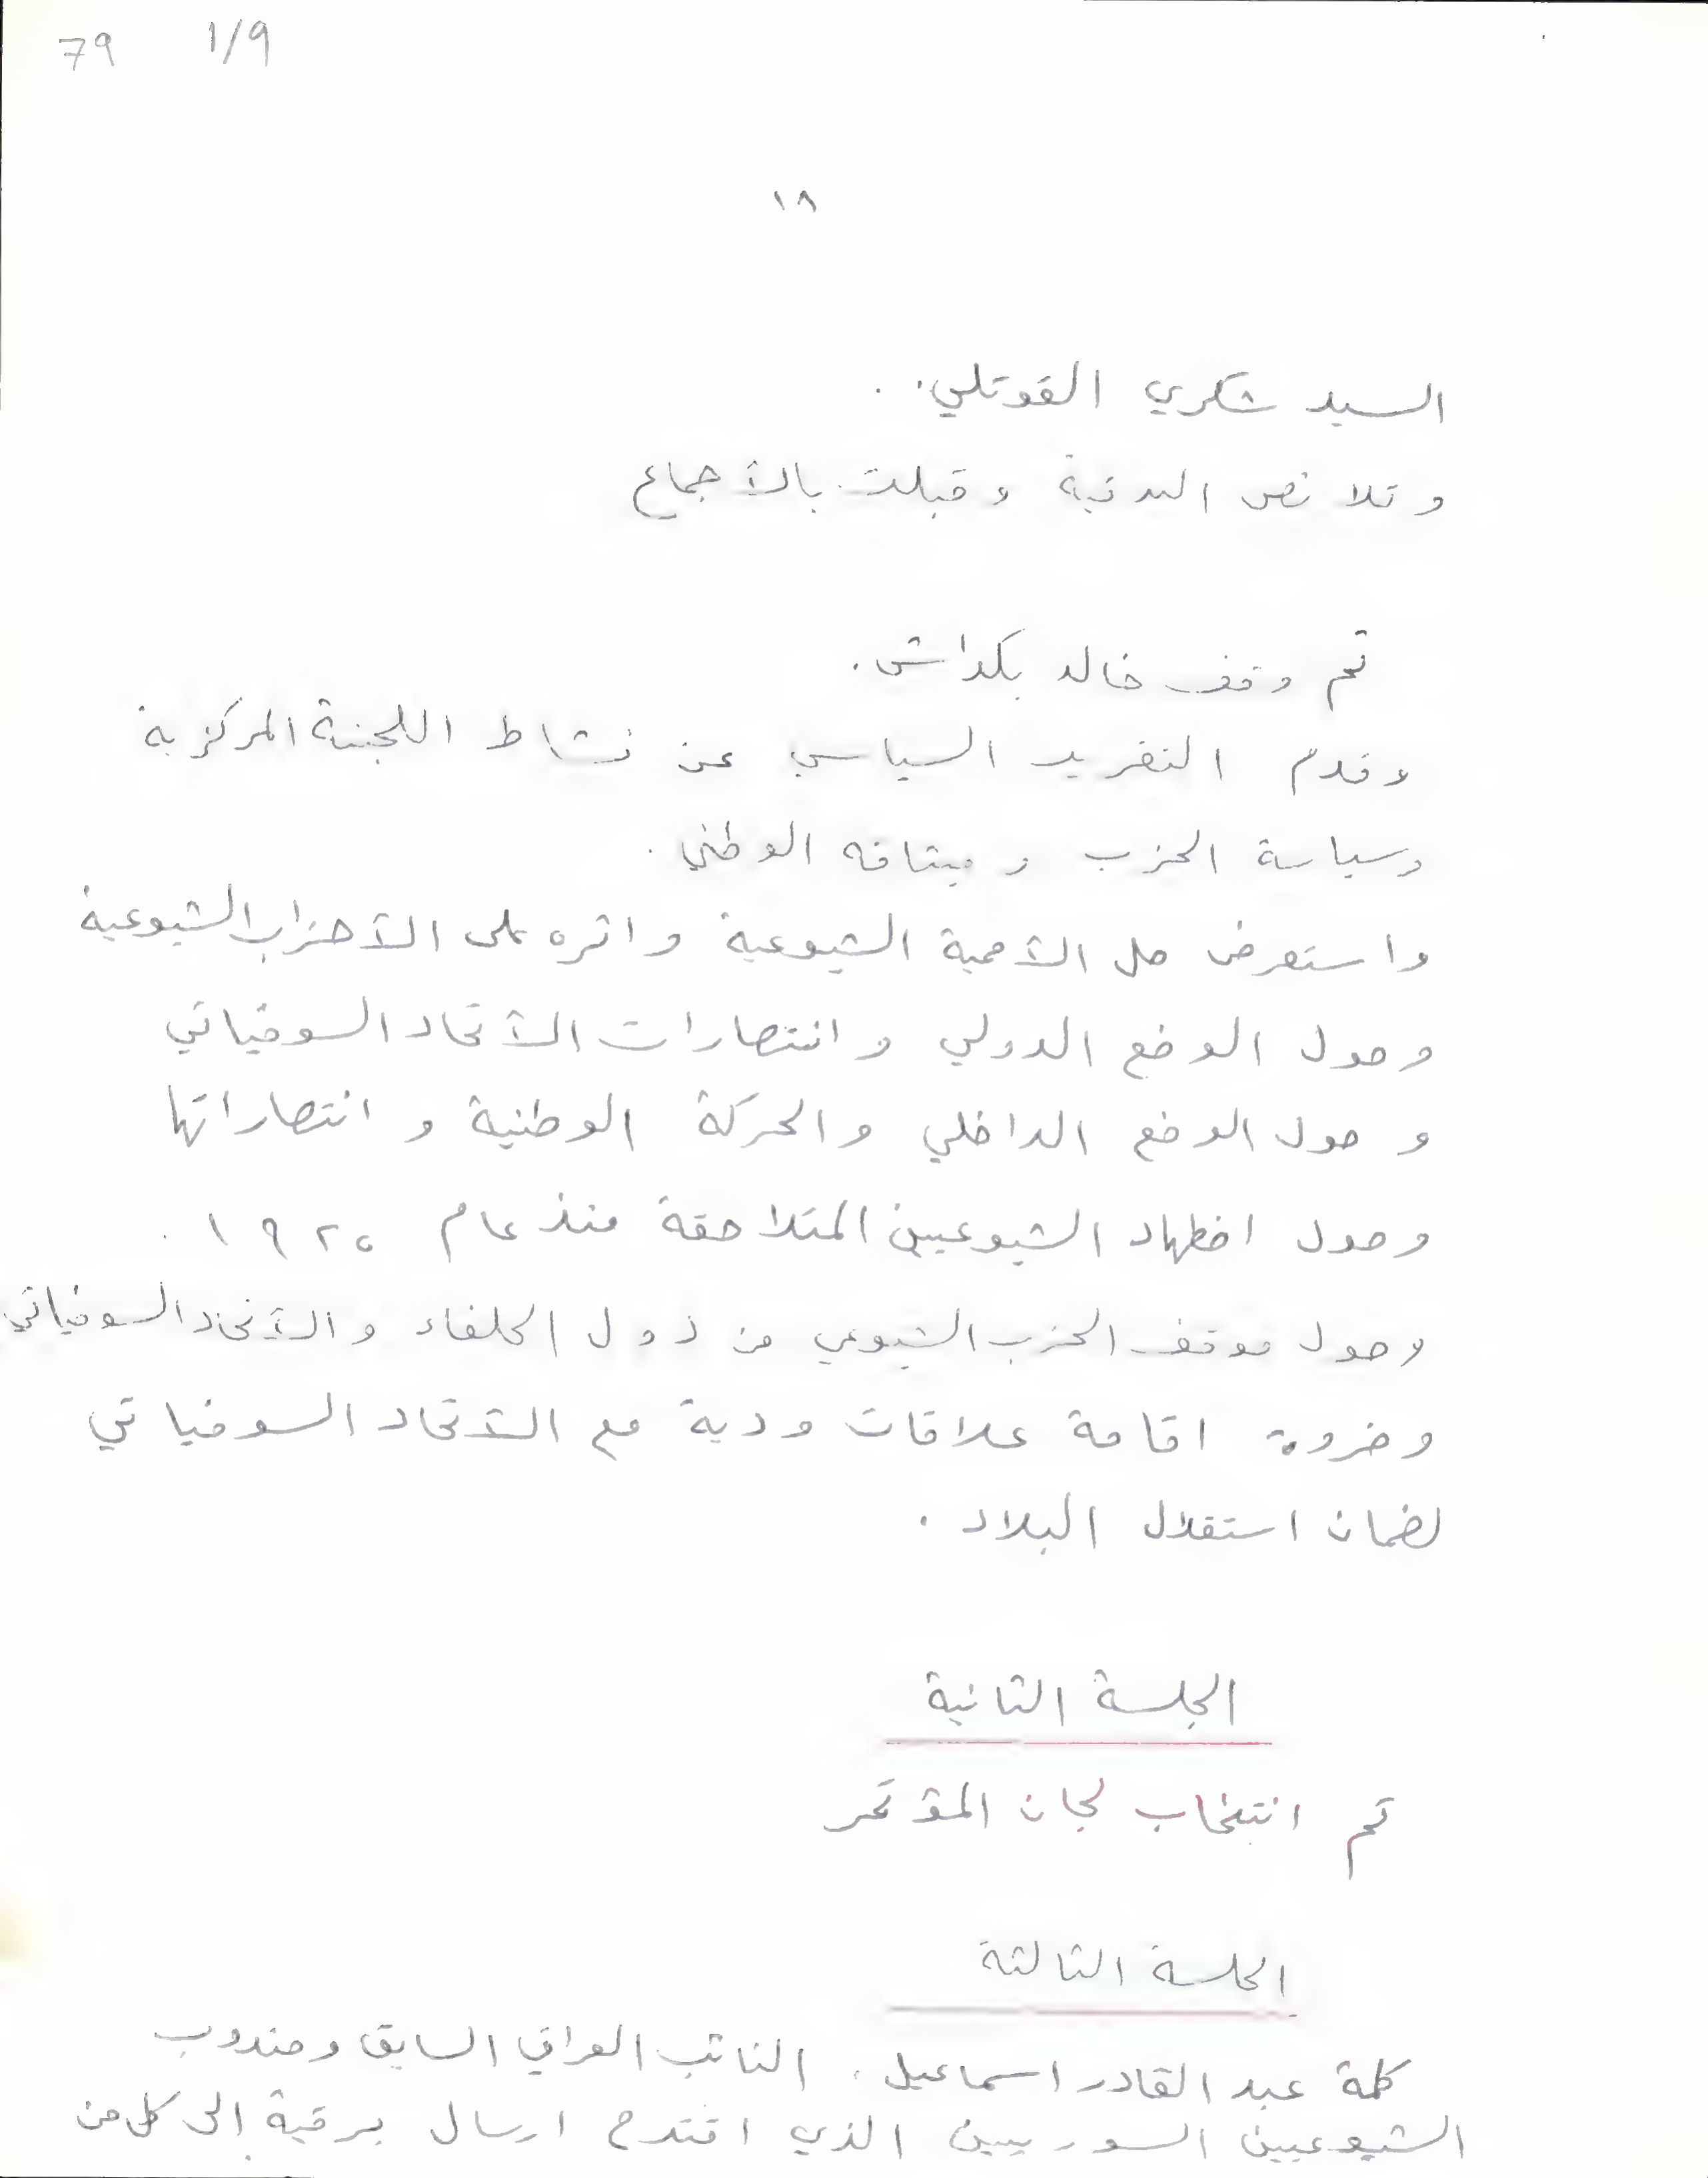 79 1/9
١٨
السيد شكري القوتلي . .
و تلا نص البرقية و قبلت بالأجماع
ثم وقف خالد بكداش .
وقدم التقرير السياسي عن نشاط اللجنة المركزية
وسياسة الحزب و ميثاقه الوطني .
واستعرض حل الأممية الشيوعية و اثره على الأحزاب الشيوعية
وحول الوضع الدولي و انتصارات الأتحاد السوفياتي
و حول الوضع الداخلي والحركة الوطنية و انتصاراتها
وحول اضطهاد الشيوعيين المتلاحقة منذ عام ١٩٢٥ .
وحول موقف الحزب الشيوعي من دول الحلفاء والأتحاد السوفياتي
وضرورة اقامة علاقات ودية مع الأتحاد السوفياتي
لضمان استقلال البلاد .
الجلسة الثانية
تم انتخاب لجان المؤتمر
الجلسة الثالثة
كلمة عبد القادر اسماعيل . النائب العراقي السابق ومندوب
الشيوعيين السوريين الذي اقترح ارسال برقية إلى كل من